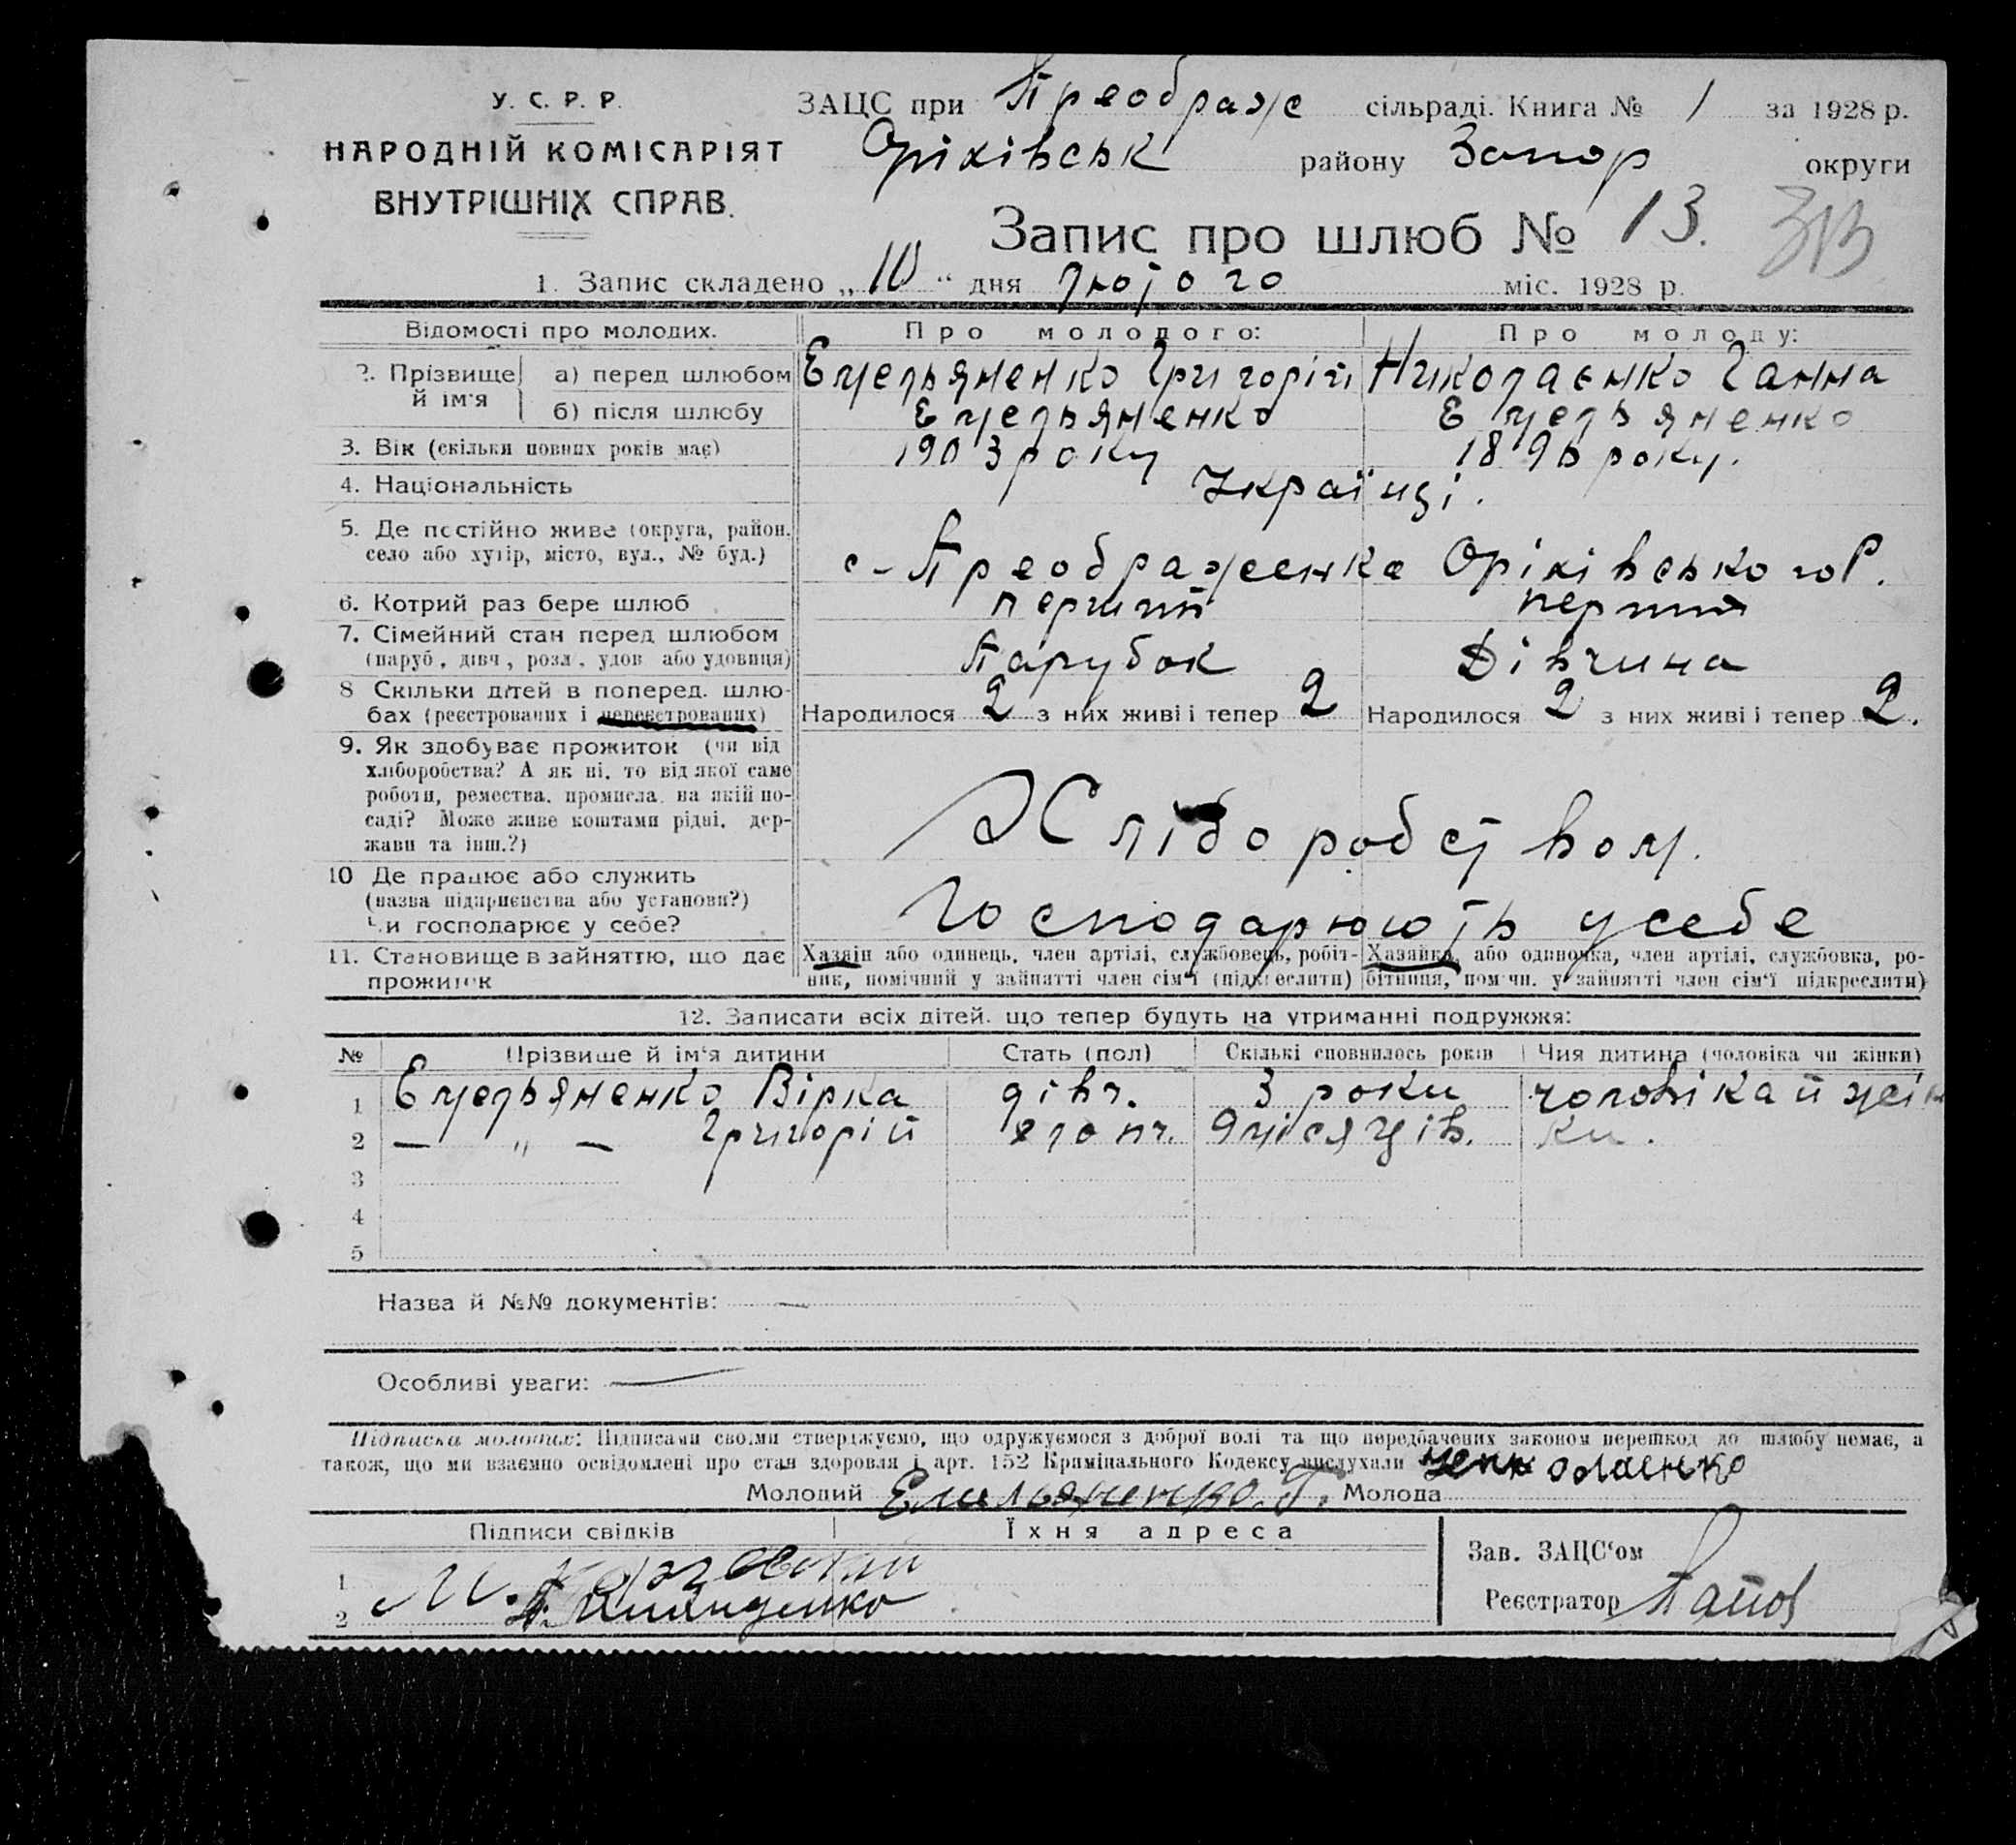 У. С. Р. Р.
НАРОДНІЙ КОМІСАРІЯТ
ВНУТРІШНІХ СПРАВ.
ЗАЦС при Преображе сільраді. Книга № 1 за 1928 р.
Оріхівськ району Запор округи
Запис про шлюб № 13.
1. Запис складено „10“ дня лютого міс. 1928 р.
Відомості про молодих. Про молодого: Про молоду:
2. Прізвище й ім'я а) перед шлюбом Емельяненко Григорій Николаєнко Ганна
б) після шлюбу Емельяненко Емельяненко
3. Вік (скільки повних років має) 1903 року року.
4. Національність Українці.
5. Де постійно живе (округа, район,
село або хутір, місто, вул., № буд.) с-Преображенка Оріхівського Р.
6. Котрий раз бере шлюб перший перший
7. Сімейний стан перед шлюбом
(паруб., дівч., розл., удов. або удовиця) Парубок Дівчина
8 Скільки дітей в поперед. шлю-
бах (реєстрованих і нереєстрованих) Народилося 2 з них живі і тепер 2 Народилося 2 з них живі і тепер 2.
9. Як здобуває прожиток (чи від
хліборобства? А як ні, то від якої саме
роботи, ремества, промисла, на якій по-
саді? Може живе коштами рідні, дер-
жави та інш.?) Хліборобством.
10 Де працює або служить
(назва підприємства або установи?)
Чи господарює у себе? Господарюють у себе
11. Становище в зайняттю, що дає
прожиток
Хазяїн або одинець, член артілі, службовець, робіт-
ник, помічний у зайнятті член сім'ї (підкреслити)
Хазяйка, або одиночка, член артілі, службовка, ро-
бітниця, помічн. у зайнятті член сім'ї підкреслити)
12. Записати всіх дітей, що тепер будуть на утриманні подружжя:
№ Прізвище й ім'я дитини Стать (пол) Скількі сповнилось років Чия дитина (чоловіка чи жінки)
1 Емельяненко Вірка дівч. 3 роки чоловіка й жін
2 — „ — Григорій хлопч. 9 місяців. ки.
3
4
5
Назва й №№ документів: —
Особливі уваги: —
Підписка молодих: Підписами своїми стверджуємо, що одружуємося з доброї волі та що передбачених законом перешкод до шлюбу немає, а
також, що ми взаємно освідомлені про стан здоровля і арт. 152 Кримінального Кодексу вислухали
Молодий Емельяненко. Г. Молода
Підписи свідків Їхня адреса
1 М.
2
Зав. ЗАЦС'ом
Реєстратор